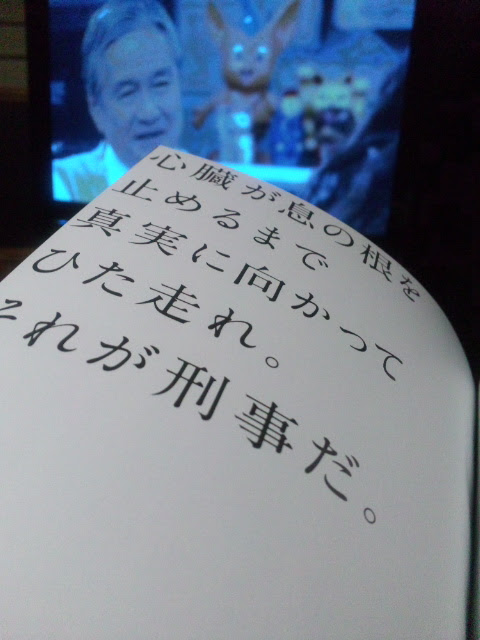 心臓が息の根を
止めるまで
真実に向かって
ひた走れ。
それが刑事だ。